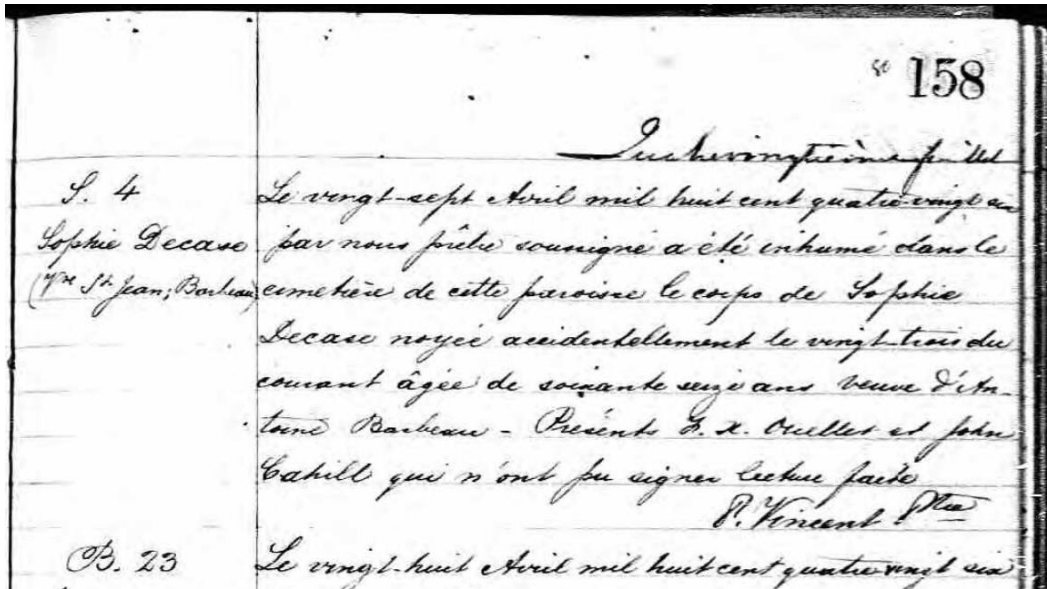 158
feuillet
S. 4
Sophie Decase
(Vve St Jean, Barbeau)
Le vingt-sept Avril mil huit cent quatre-vingt six
par nous prêtre soussigné a été inhumé dans le
cimetière de cette paroisse le corps de Sophie
Decase noyée accidentellement le vingt-trois du
courant âgée de soixante seize ans veuve d'An-
toine Barbeau - Présents F. X. Ouellet et John
Cahill qui n'ont pu signer lecture faite
P. Vincent Ptre
B. 23
Le vingt-huit Avril mil huit cent quatre vingt six